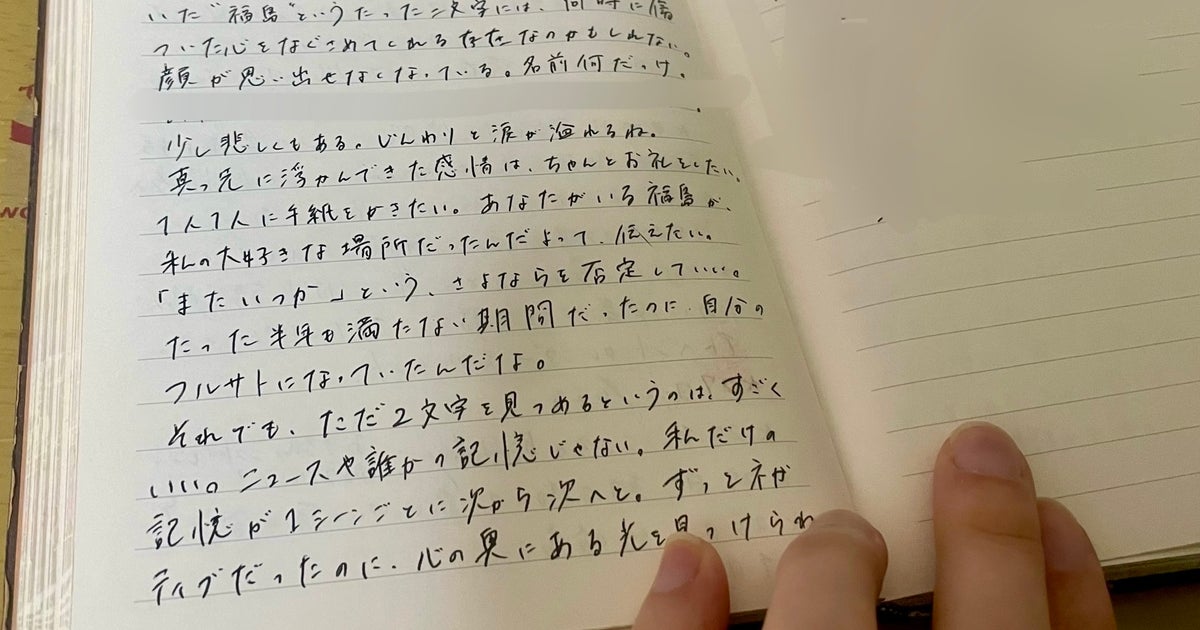 いた"福島"というたった二文字には、何時に傷
ついた心をなぐさめてくれる存在なのかもしれない。
顔が思い出せなくなっている。名前何だっけ。
少し悲しくもある。じんわりと涙が溢れるね。
真っ先に浮かんできた感情は、ちゃんとお礼をしたい。
1人1人に手紙をかきたい。あなたがいる福島が、
私の大好きな場所だったんだよって、伝えたい。
「またいつか」という、さよならを否定していい。
たった半年も満たない期間だったのに、自分の
フルサトになっていたんだな。
それでも、ただ2文字を見つめるというのは、すごく
いい。ニュースや誰かの記憶じゃない。私だけの
記憶が1シーンごとに次から次へと。ずっとネガ
ティブだったのに、心の奥にある光を見つけられ